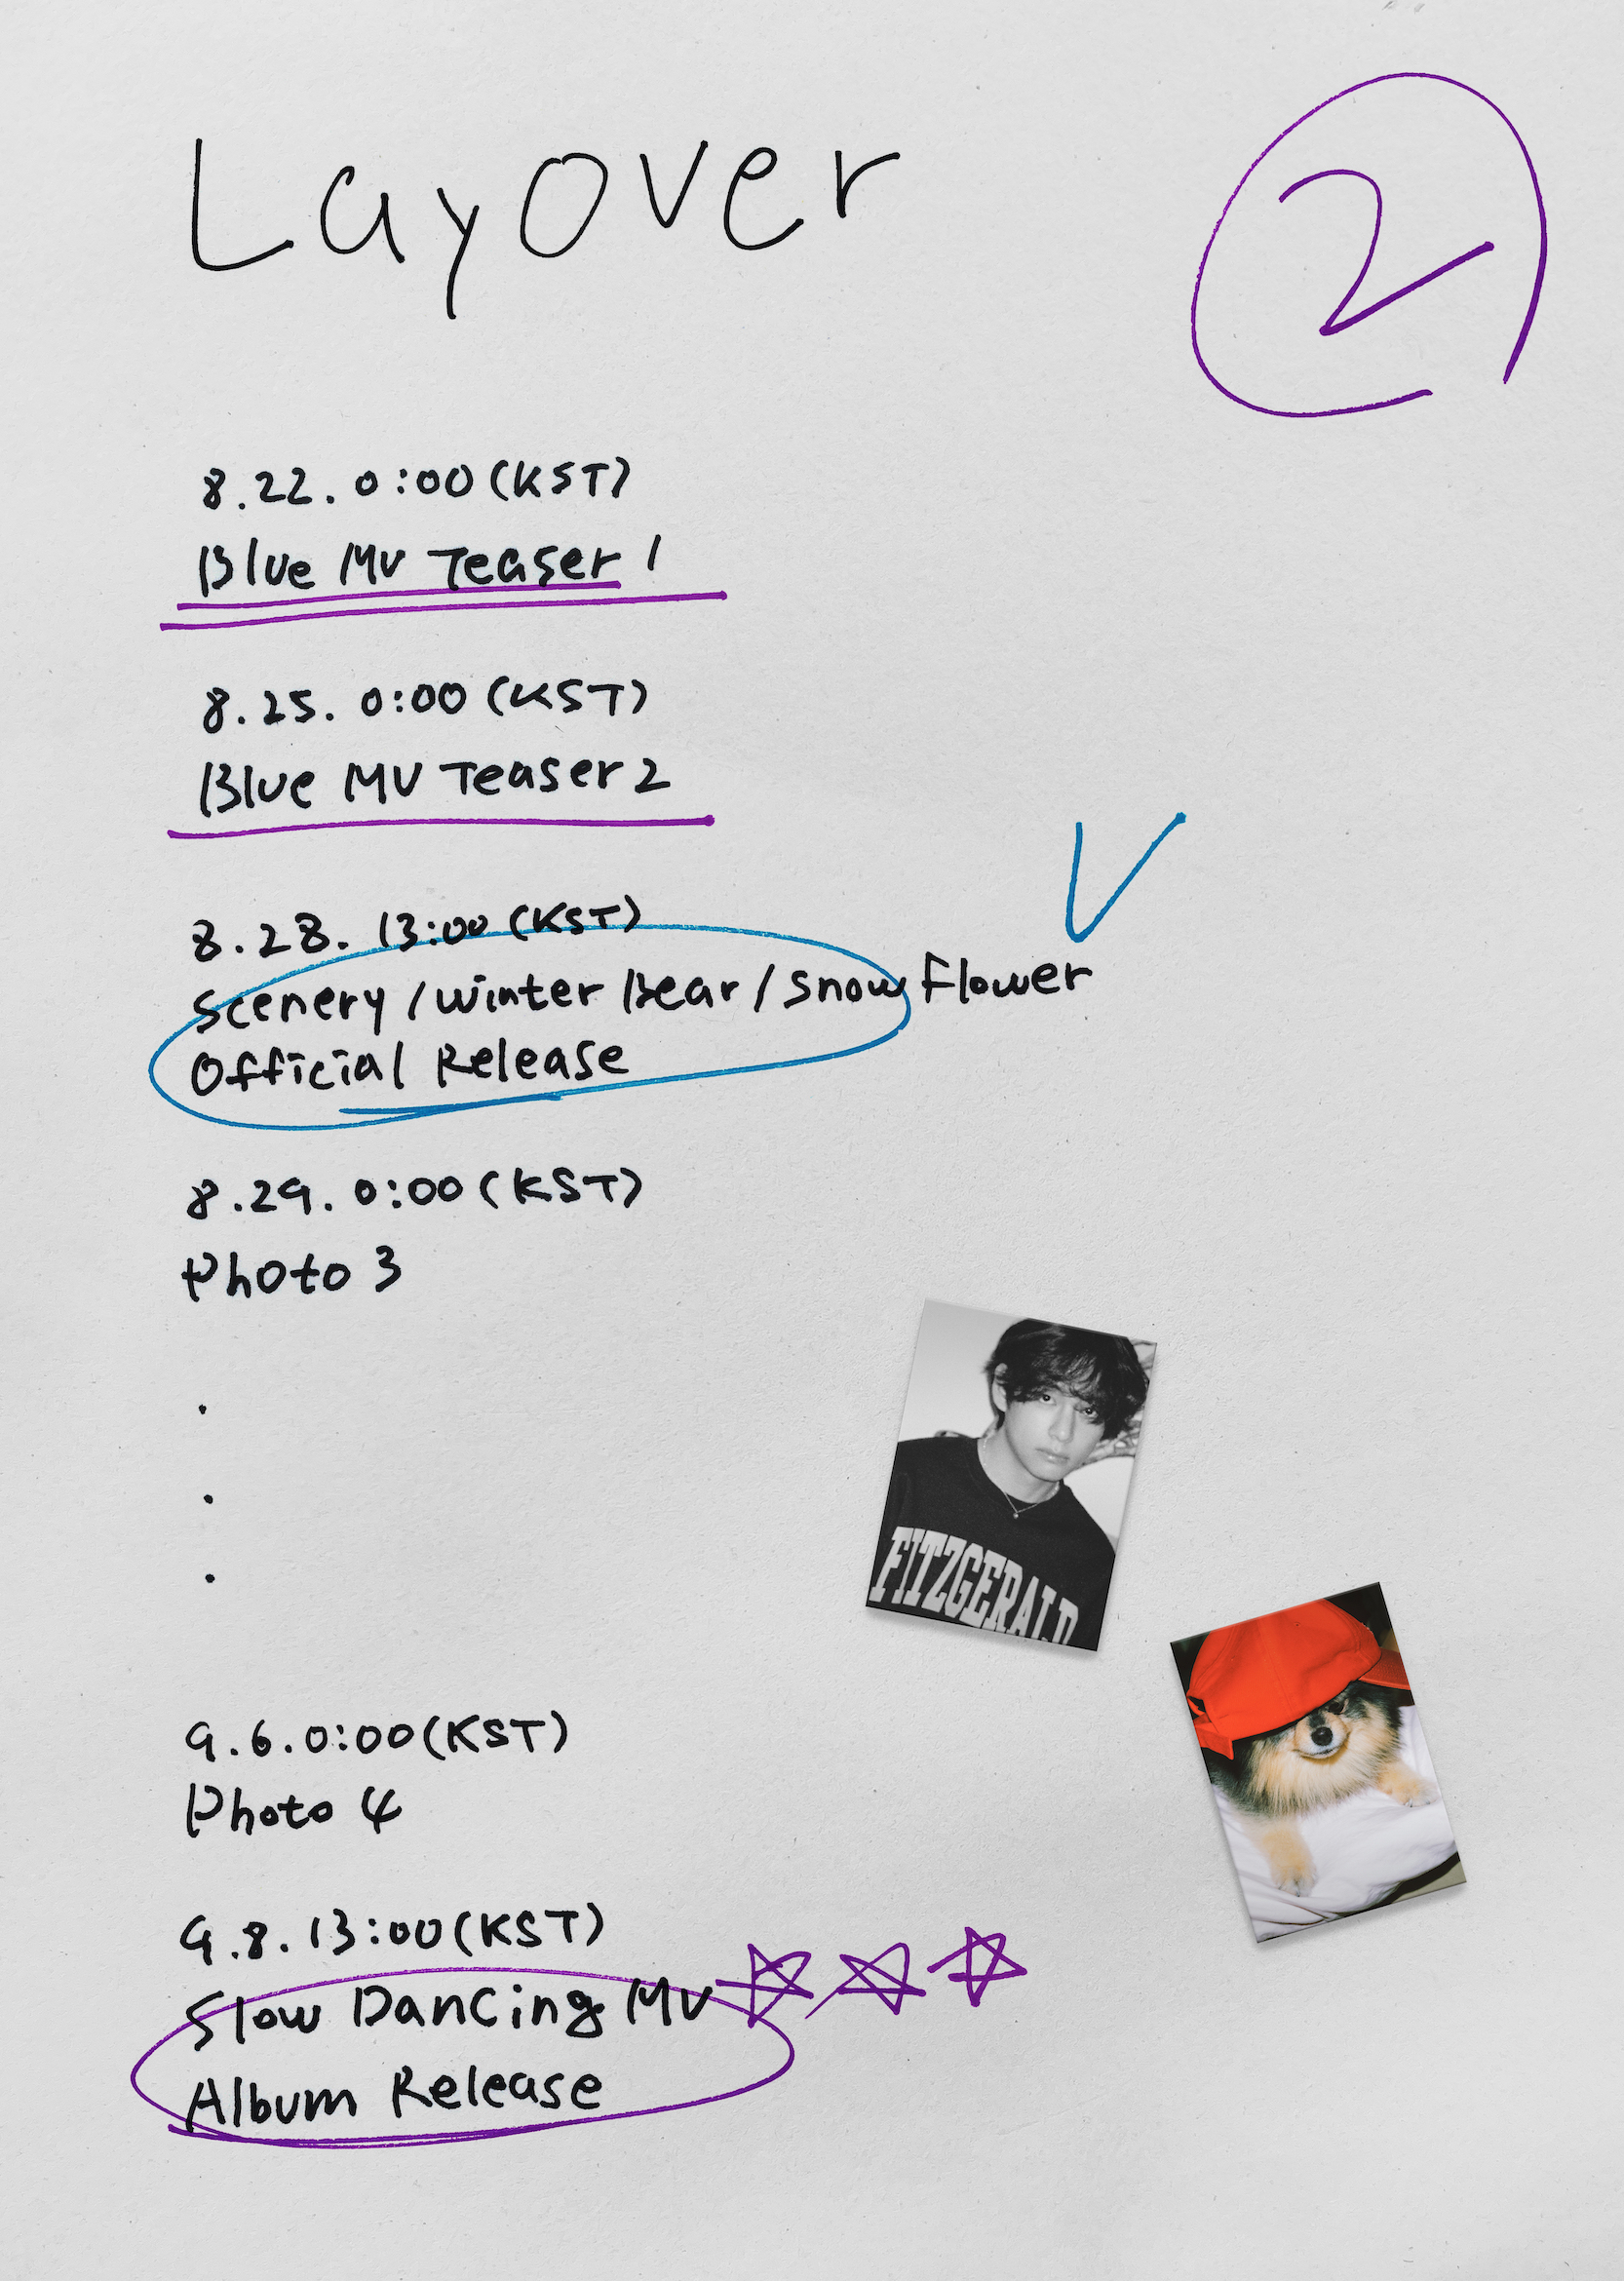 Layover
2
8.22. 0:00 (KST)
Blue MV Teaser 1
8.25. 0:00 (KST)
Blue MV Teaser 2
V
8.28. 13:00 (KST)
Scenery / Winter Bear / Snow Flower
Official Release
8.29. 0:00 (KST)
Photo 3
.
.
.
FITZGERALD
9.6. 0:00 (KST)
Photo 4
9.8. 13:00 (KST)
Slow Dancing MV
Album Release